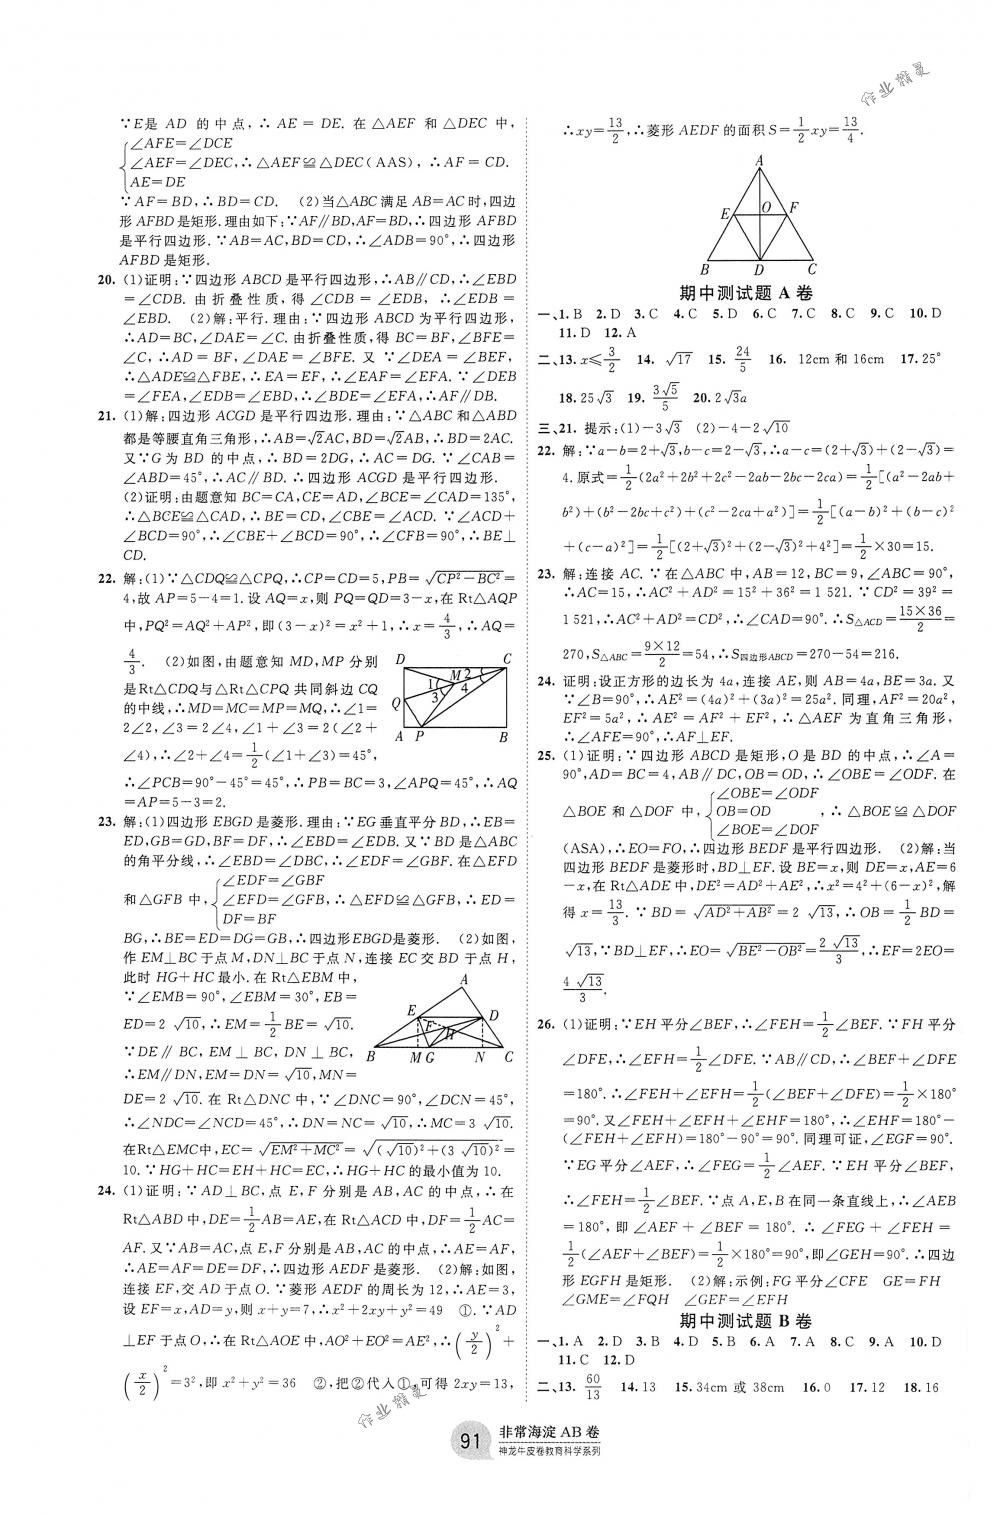 ∵E是 AD 的中点,∴AE=DE.在△AEF 和△DEC 中,
∠AFE=∠DCE
∠AEF=∠DEC,∴△AEF≌△DEC(AAS),∴AF=CD.
AE=DE
∵AF=BD,∴BD=CD. (2)当△ABC 满足 AB=AC 时,四边
形 AFBD 是矩形.理由如下:∵AF∥BD,AF=BD,∴四边形 AFBD
是平行四边形.∵AB=AC,BD=CD,∴∠ADB=90°,∴四边形
AFBD 是矩形.
20. (1)证明:∵四边形 ABCD 是平行四边形,∴AB∥CD,∴∠EBD
=∠CDB.由折叠性质,得∠CDB=∠EDB,∴∠EDB=
∠EBD. (2)解:平行.理由:∵四边形 ABCD 为平行四边形,
∴AD=BC,∠DAE=∠C.由折叠性质,得 BC=BF,∠BFE=
∠C,∴AD=BF,∠DAE=∠BFE.又∵∠DEA=∠BEF,
∴△ADE≌△FBE,∴EA=EF,∴∠EAF=∠EFA.∵∠DEB
=∠FEA,∠EDB=∠EBD,∴∠BDE=∠EFA,∴AF∥DB.
21. (1)解:四边形 ACGD 是平行四边形.理由:∵△ABC 和△ABD
都是等腰直角三角形,∴AB=√2AC,BD=√2AB,∴BD=2AC.
又∵G 为 BD 的中点,∴BD=2DG,∴AC=DG.∵∠CAB=
∠ABD=45°,∴AC∥BD.∴四边形 ACGD 是平行四边形.
(2)证明:由题意知 BC=CA,CE=AD,∠BCE=∠CAD=135°,
∴△BCE≌△CAD,∴BE=CD,∠CBE=∠ACD.∵∠ACD+
∠BCD=90°,∴∠CBE+∠BCD=90°,∴∠CFB=90°,∴BE⊥
CD.
22. 解:(1)∵△CDQ≌△CPQ,∴CP=CD=5,PB=√(CP²-BC²)=
4,故 AP=5-4=1.设 AQ=x,则 PQ=QD=3-x,在 Rt△AQP
中,PQ²=AQ²+AP²,即(3-x)²=x²+1,∴x=4/3,∴AQ=
4/3. (2)如图,由题意知 MD,MP 分别
是Rt△CDQ与△Rt△CPQ 共同斜边 CQ
的中线,∴MD=MC=MP=MQ,∴∠1=
2∠2,∠3=2∠4,∠1+∠3=2(∠2+
∠4),∴∠2+∠4=1/2(∠1+∠3)=45°,
D C M 2 1 3 4 Q A P B
∴∠PCB=90°-45°=45°,∴PB=BC=3,∠APQ=45°,∴AQ
=AP=5-3=2.
23. 解:(1)四边形 EBGD 是菱形.理由:∵EG 垂直平分 BD,∴EB=
ED,GB=GD,BF=DF,∴∠EBD=∠EDB.又∵BD 是△ABC
的角平分线,∴∠EBD=∠DBC,∴∠EDF=∠GBF.在△EFD
∠EDF=∠GBF
和△GFB 中,∠EFD=∠GFB,∴△EFD≌△GFB,∴ED=
DF=BF
BG,∴BE=ED=DG=GB,∴四边形EBGD是菱形. (2)如图,
作 EM⊥BC 于点 M,DN⊥BC 于点 N,连接 EC 交 BD 于点 H,
此时 HG+HC 最小.在 Rt△EBM 中,
∵∠EMB=90°,∠EBM=30°,EB=
ED=2√10,∴EM=1/2BE=√10.
∵DE∥BC,EM⊥BC,DN⊥BC,
∴EM∥DN,EM=DN=√10,MN=
A E D F H B M G N C
DE=2√10.在 Rt△DNC 中,∵∠DNC=90°,∠DCN=45°,
∴∠NDC=∠NCD=45°,∴DN=NC=√10,∴MC=3√10.
在Rt△EMC中,EC=√(EM²+MC²)=√((√10)²+(3√10)²)=
10.∵HG+HC=EH+HC=EC,∴HG+HC 的最小值为 10.
24. (1)证明:∵AD⊥BC,点 E,F 分别是 AB,AC 的中点,∴在
Rt△ABD 中,DE=1/2AB=AE,在 Rt△ACD 中,DF=1/2AC=
AF.又∵AB=AC,点 E,F 分别是 AB,AC 的中点,∴AE=AF,
∴AE=AF=DE=DF,∴四边形 AEDF 是菱形. (2)解:如图,
连接 EF,交 AD 于点 O.∵菱形 AEDF 的周长为 12,∴AE=3,
设 EF=x,AD=y,则 x+y=7,∴x²+2xy+y²=49 ①.∵AD
⊥EF 于点 O,∴在 Rt△AOE 中,AO²+EO²=AE²,∴(y/2)²+
(x/2)²=3²,即 x²+y²=36 ②,把②代入①,可得 2xy=13,
∴xy=13/2,∴菱形 AEDF 的面积 S=1/2xy=13/4.
A E O F B D C
期中测试题 A 卷
一、1.B 2.D 3.C 4.C 5.D 6.C 7.C 8.C 9.C 10.D
11.D 12.A
二、13. x≤3/2 14. √17 15. 24/5 16. 12cm 和 16cm 17. 25°
18. 25√3 19. 3√5/5 20. 2√3a
三、21. 提示:(1)-3√3 (2)-4-2√10
22. 解:∵a-b=2+√3,b-c=2-√3,∴a-c=(2+√3)+(2-√3)=
4.原式=1/2(2a²+2b²+2c²-2ab-2bc-2ca)=1/2[(a²-2ab+
b²)+(b²-2bc+c²)+(c²-2ca+a²)]=1/2[(a-b)²+(b-c)²
+(c-a)²]=1/2[(2+√3)²+(2-√3)²+4²]=1/2×30=15.
23. 解:连接 AC.∵在△ABC 中,AB=12,BC=9,∠ABC=90°,
∴AC=15,∴AC²+AD²=15²+36²=1 521.∵CD²=39²=
1 521,∴AC²+AD²=CD²,∴∠CAD=90°.∴S△ACD=15×36/2=
270,S△ABC=9×12/2=54,∴S四边形ABCD=270-54=216.
24. 证明:设正方形的边长为 4a,连接 AE,则 AB=4a,BE=3a.又
∵∠B=90°,∴AE²=(4a)²+(3a)²=25a².同理,AF²=20a²,
EF²=5a²,∴AE²=AF²+EF²,∴△AEF 为直角三角形,
∴∠AFE=90°,∴AF⊥EF.
25. (1)证明:∵四边形 ABCD 是矩形,O 是 BD 的中点,∴∠A=
90°,AD=BC=4,AB∥DC,OB=OD,∴∠OBE=∠ODF.在
∠OBE=∠ODF
△BOE 和△DOF 中,OB=OD ,∴△BOE≌△DOF
∠BOE=∠DOF
(ASA),∴EO=FO,∴四边形 BEDF 是平行四边形. (2)解:当
四边形 BEDF 是菱形时,BD⊥EF.设 BE=x,则 DE=x,AE=6
-x,在 Rt△ADE 中,DE²=AD²+AE²,∴x²=4²+(6-x)²,解
得 x=13/3.∵BD=√(AD²+AB²)=2√13,∴OB=1/2BD=
√13,∵BD⊥EF,∴EO=√(BE²-OB²)=2√13/3,∴EF=2EO=
4√13/3.
26. (1)证明:∵EH 平分∠BEF,∴∠FEH=1/2∠BEF.∵FH 平分
∠DFE,∴∠EFH=1/2∠DFE.∵AB∥CD,∴∠BEF+∠DFE
=180°.∴∠FEH+∠EFH=1/2(∠BEF+∠DFE)=1/2×180°
=90°.又∠FEH+∠EFH+∠EHF=180°,∴∠EHF=180°-
(∠FEH+∠EFH)=180°-90°=90°.同理可证,∠EGF=90°.
∵EG 平分∠AEF,∴∠FEG=1/2∠AEF.∵EH 平分∠BEF,
∴∠FEH=1/2∠BEF.∵点 A,E,B 在同一条直线上,∴∠AEB
=180°,即∠AEF+∠BEF=180°.∴∠FEG+∠FEH=
1/2(∠AEF+∠BEF)=1/2×180°=90°,即∠GEH=90°.∴四边
形 EGFH 是矩形. (2)解:示例:FG 平分∠CFE GE=FH
∠GME=∠FQH ∠GEF=∠EFH
期中测试题 B 卷
一、1.A 2.D 3.B 4.D 5.B 6.A 7.A 8.C 9.A 10.D
11.C 12.D
二、13. 60/13 14. 13 15. 34cm 或 38cm 16. 0 17. 12 18. 16
91 非常海淀 AB 卷
神龙牛皮卷教育科学系列
作业精灵
作业精灵